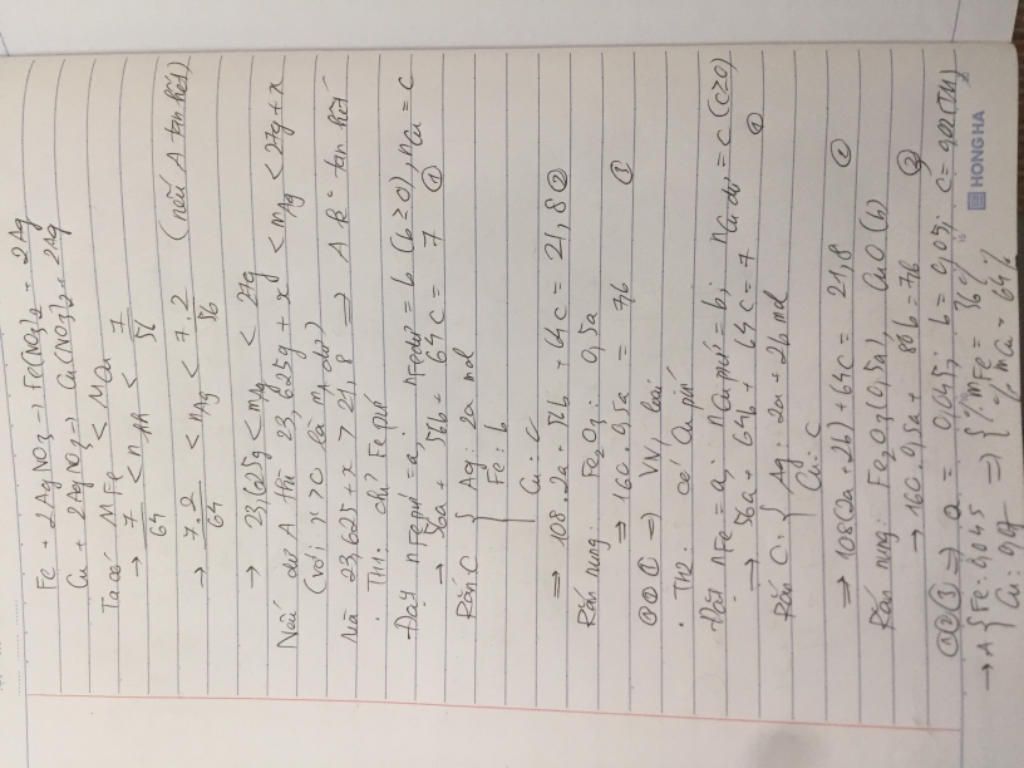 Fe + 2AgNO3 → Fe(NO3)2 + 2Ag
Cu + 2AgNO3 → Cu(NO3)2 + 2Ag
Ta có MFe < MCu
→ 7/64 < nhh < 7/56
→ 7.2/64 < nAg < 7.2/56 (nếu A tan hết)
→ 23,625g < mAg < 27g
Nếu dư A thì 23,625g + x < mAg < 27g + x
(với x > 0 là m dư)
Mà 23,625 + x > 21,8 ⇒ A k° tan hết
• TH1: chỉ Fe pứ
Đặt nFe pứ = a; nFe dư = b (b≥0), nCu = c
→ 56a + 56b + 64c = 7 ①
Rắn C { Ag: 2a mol
Fe: b
Cu: c
⇒ 108.2a + 56b + 64c = 21,8 ②
Rắn nung: Fe2O3: 0,5a
⇒ 160.0,5a = 7,6 ①
⇒ VN, loại
• TH2: có Cu pứ
Đặt nFe = a; nCu pứ = b; nCu dư = c (c≥0)
→ 56a + 64b + 64c = 7
Rắn C: { Ag: 2a + 2b mol
Cu: c
⇒ 108(2a + 2b) + 64c = 21,8
Rắn nung: Fe2O3 (0,5a), CuO (b)
→ 160.0,5a + 80b = 7,6
⇒ a = 0,045; b = 0,05; c = 0,02 (TM)
→ A { Fe: 0,045 ⇒ { %mFe = 36%
%mCu = 64%
HONG HA